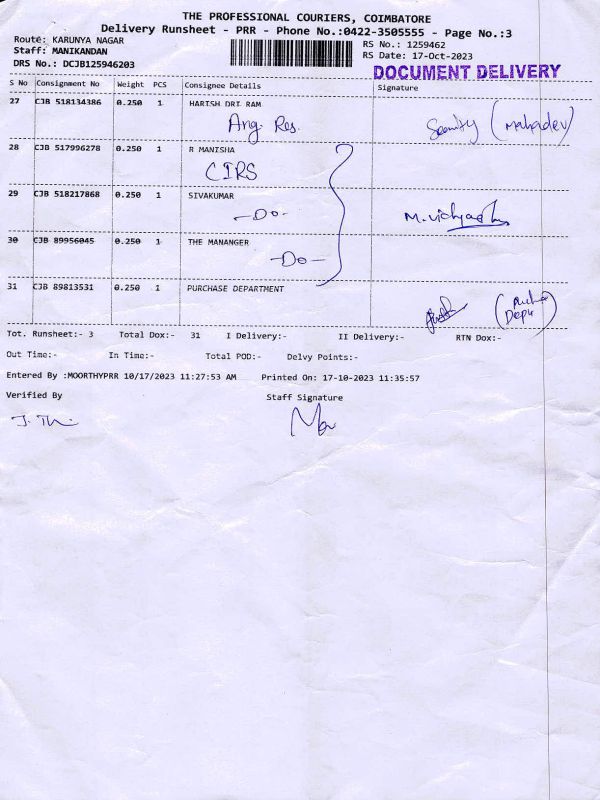 THE PROFESSIONAL COURIERS, COIMBATORE
Delivery Runsheet - PRR - Phone No.:0422-3505555 - Page No.:3
Route: KARUNYA NAGAR
RS No.: 1259462
Staff: MANIKANDAN
RS Date: 17-Oct-2023
DRS No.: DCJB125946203
DOCUMENT DELIVERY
S No Consignment No Weight PCS Consignee Details Signature
27 CJB 518134386 0.250 1 HARISH DRI RAM
Ang. Res. (Mahadev)
28 CJB 517996278 0.250 1 R MANISHA
CIRS
29 CJB 518217868 0.250 1 SIVAKUMAR
-Do- M.
30 CJB 89956045 0.250 1 THE MANANGER
-Do-
31 CJB 89813531 0.250 1 PURCHASE DEPARTMENT
Tot. Runsheet:- 3 Total Dox:- 31 I Delivery:- II Delivery:- RTN Dox:-
Out Time:- In Time:- Total POD:- Delvy Points:-
Entered By :MOORTHYPRR 10/17/2023 11:27:53 AM Printed On: 17-10-2023 11:35:57
Verified By Staff Signature